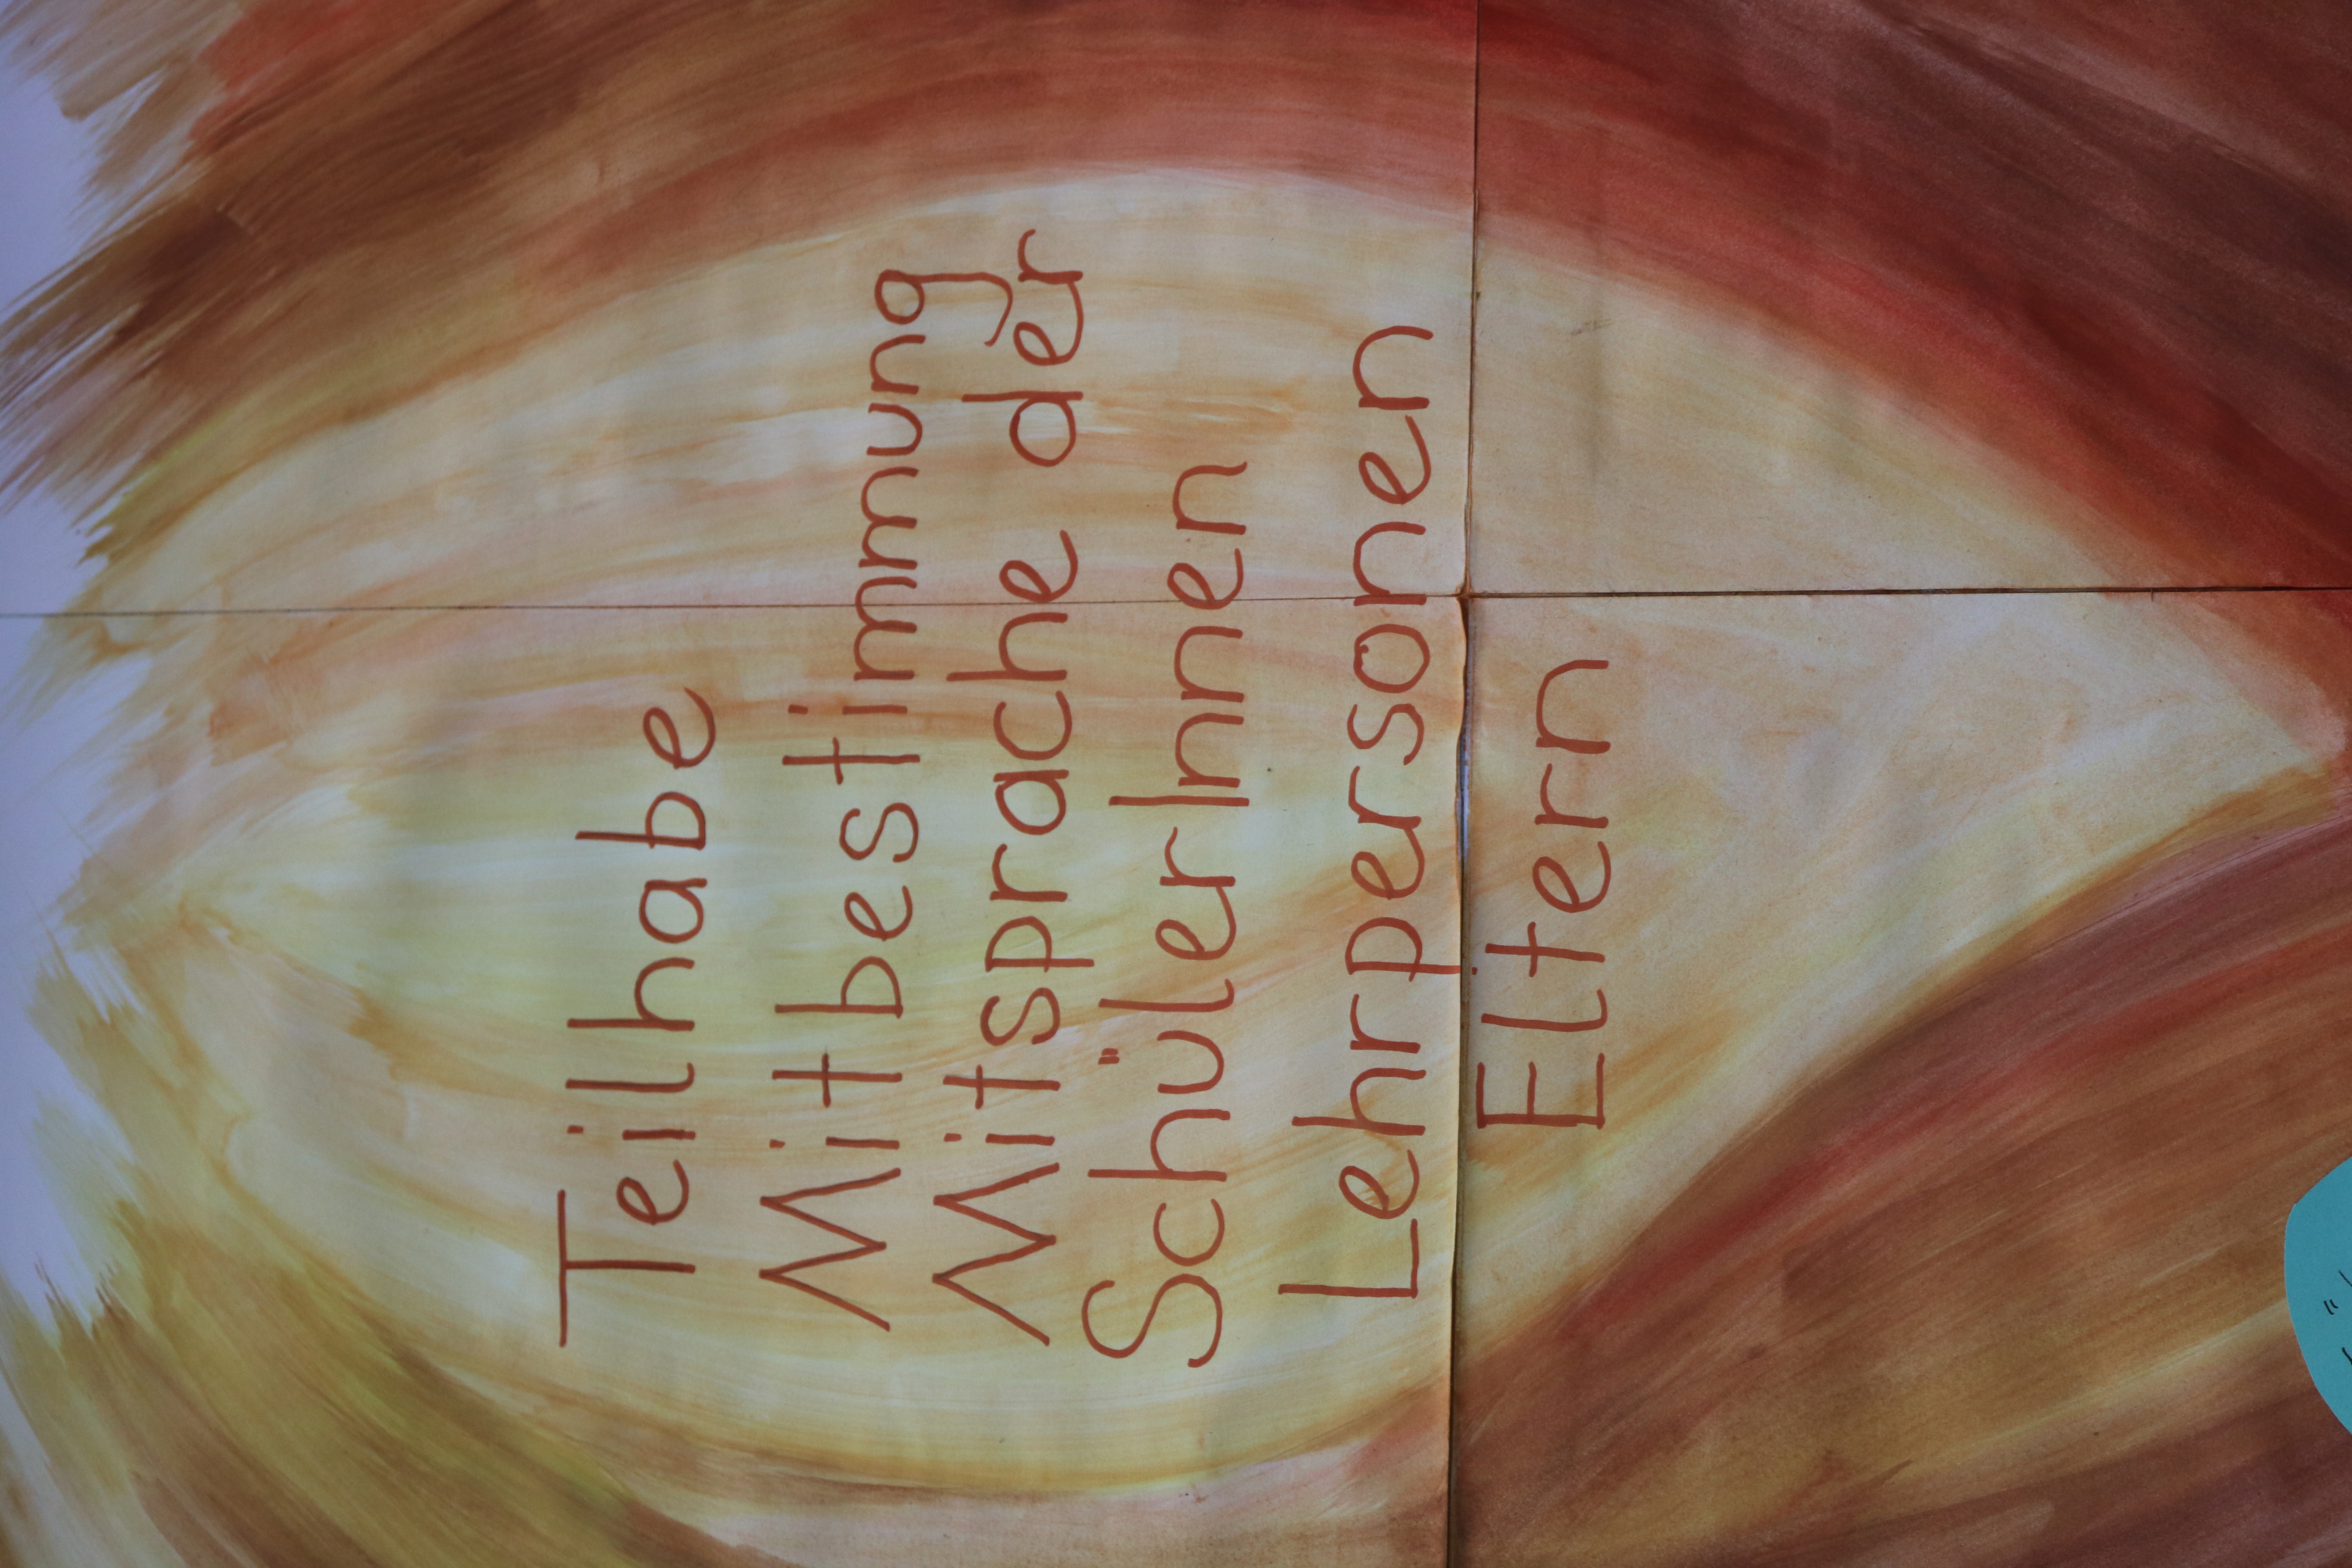 Teilhabe
Mitbestimmung
Mitsprache der
SchülerInnen
Lehrpersonen
Eltern